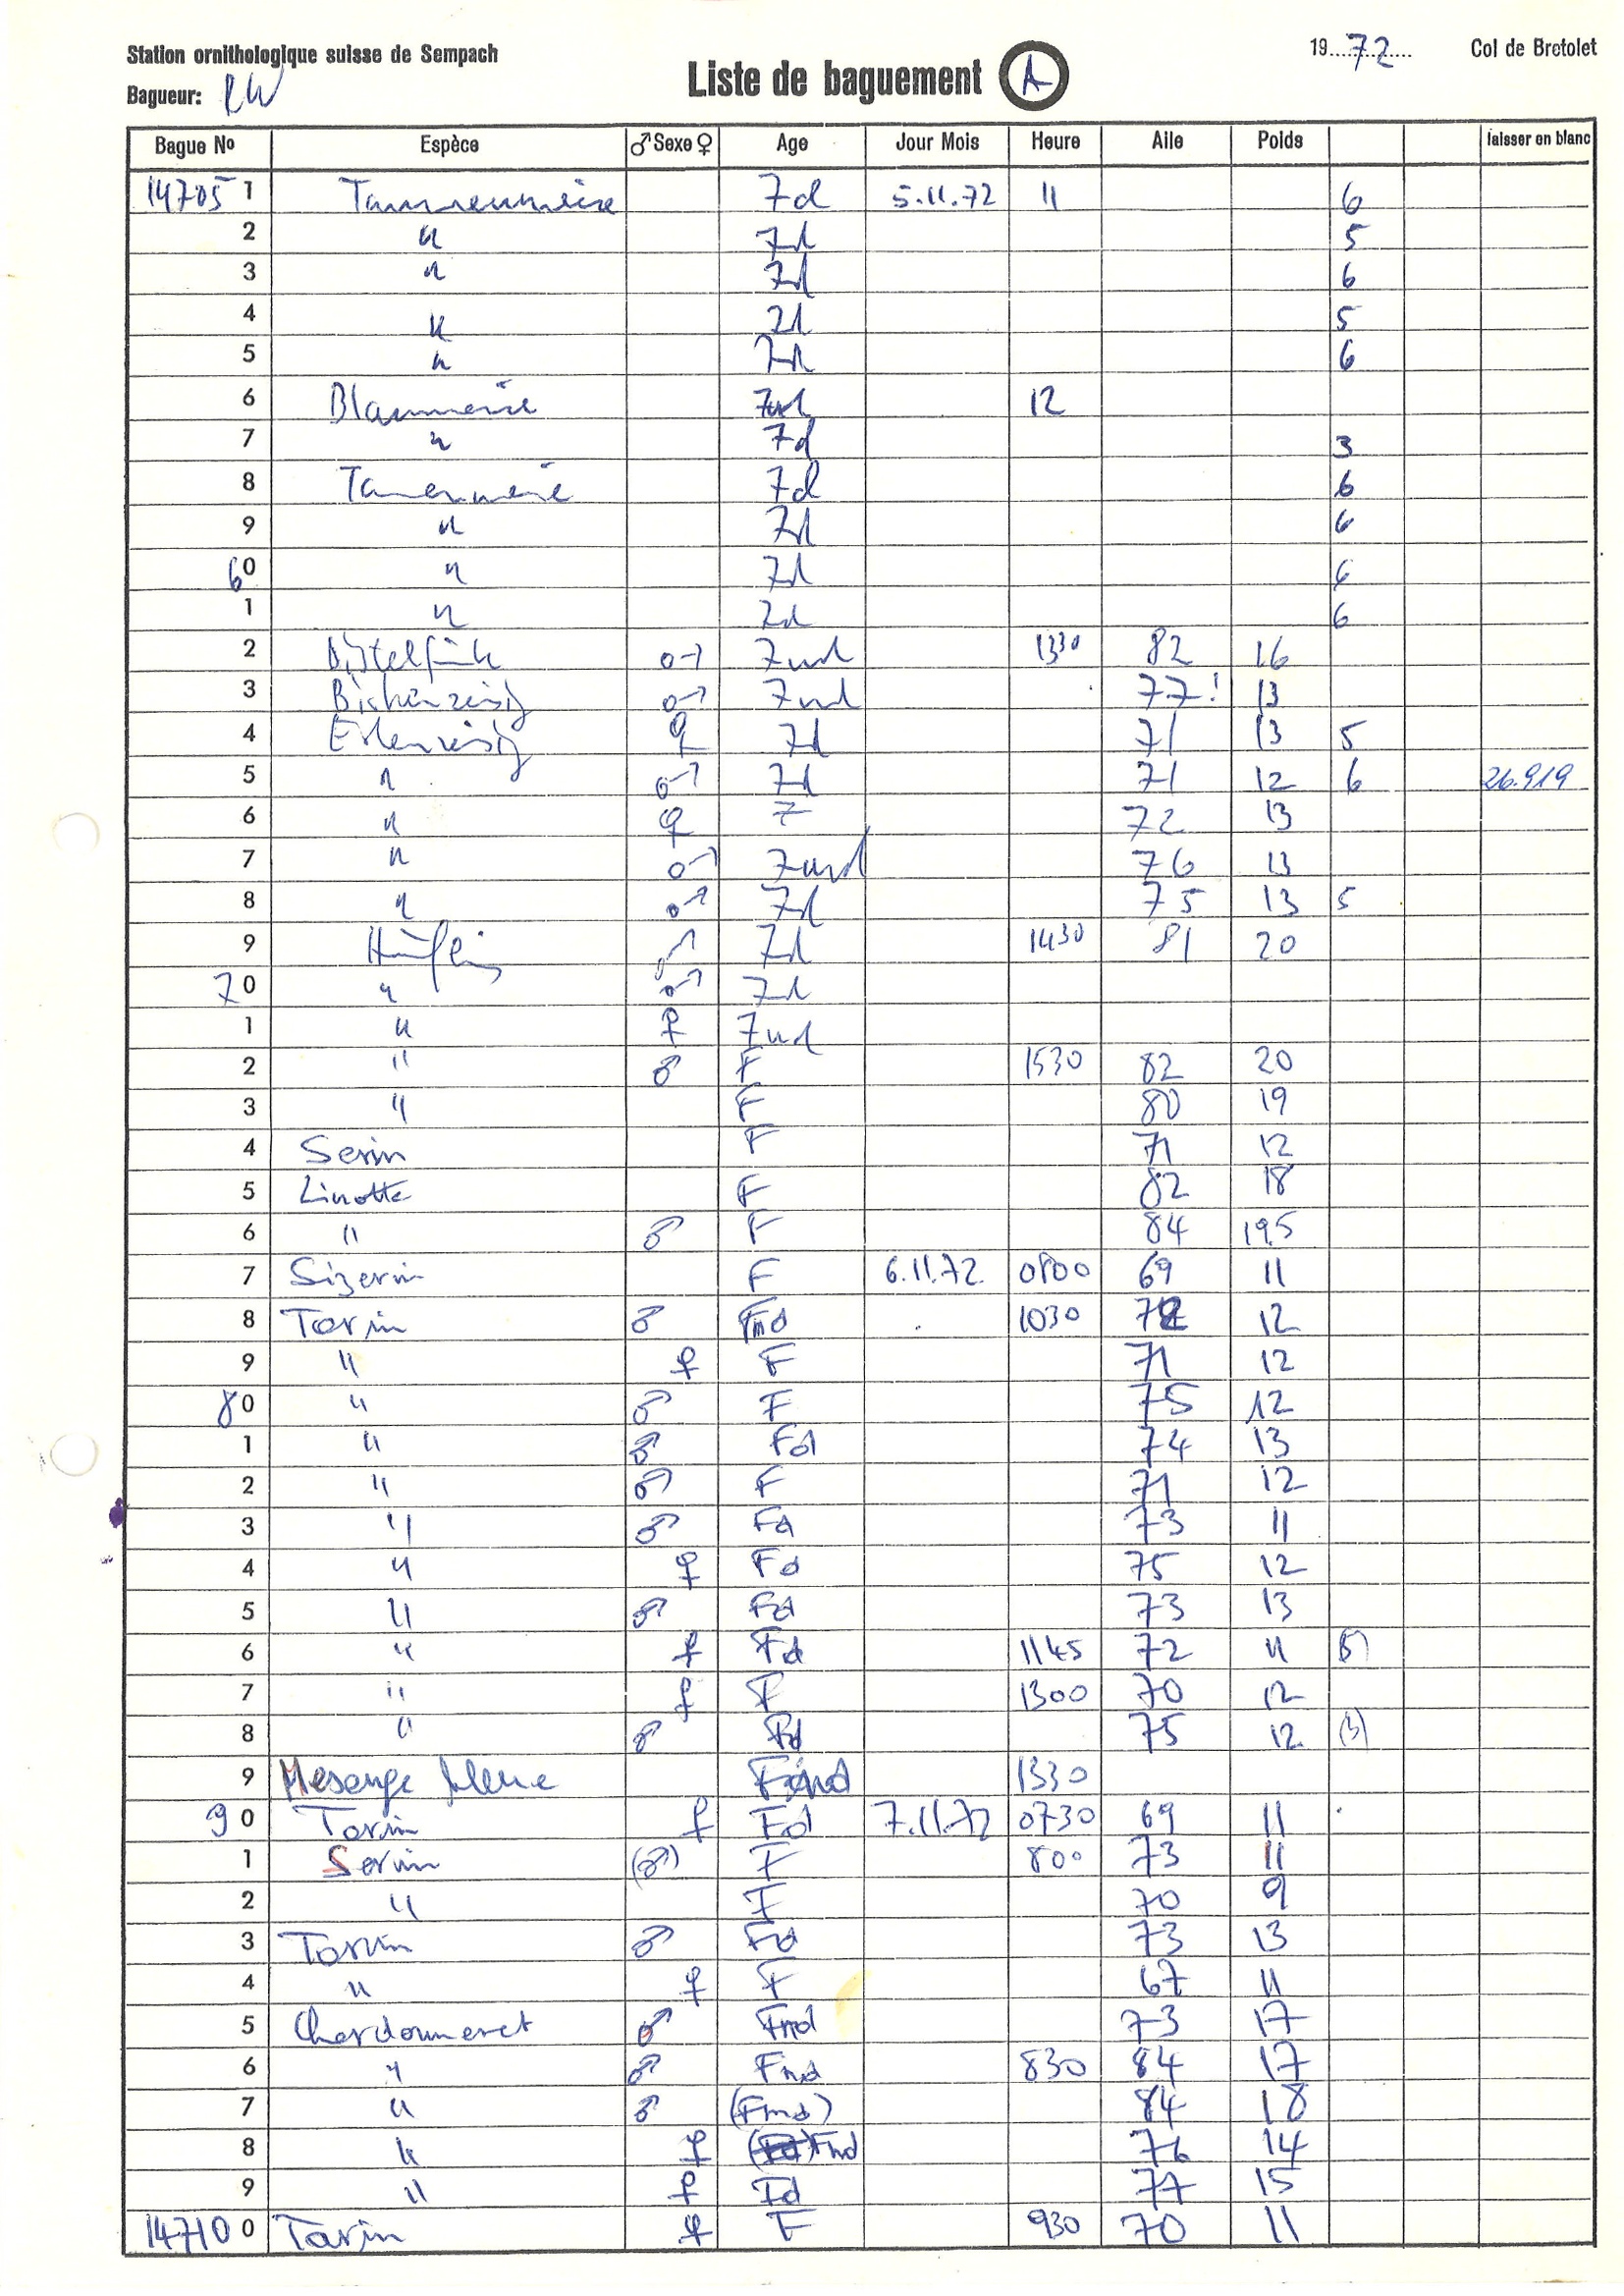 Station ornithologique suisse de Sempach
19 72 Col de Bretolet
Bagueur: RW
Liste de baguement A
Bague No Espèce ♂ Sexe ♀ Age Jour Mois Heure Aile Poids laisser en blanc
14705 1 Tannenmeise 7d 5.11.72 11 6
2 " 7d 5
3 " 7d 6
4 " 7d 5
5 " 7d 6
6 Blaumeise 7nd 12
7 " 7d 3
8 Tannenmeise 7d 6
9 " 7d 6
60 " 7d 6
1 " 7d 6
2 Distelfink ♂ 7nd 1330 82 16
3 Birkenzeisig ♂ 7nd 77! 13
4 Erlenzeisig ♀ 7d 71 13 5
5 " ♂ 7d 71 12 6 26.919
6 " ♀ 7 72 13
7 " ♂ 7nd 76 13
8 " ♂ 7d 75 13 5
9 Hänfling ♂ 7d 1430 81 20
70 " ♂ 7d
1 " ♀ 7nd
2 " ♂ F 1530 82 20
3 " F 80 19
4 Serin F 71 12
5 Linotte F 82 18
6 " ♂ F 84 19.5
7 Sizerin F 6.11.72. 0800 69 11
8 Tarin ♂ Fnd 1030 12
9 " ♀ F 71 12
80 " ♂ F 75 12
1 " ♂ Fd 74 13
2 " ♂ F 71 12
3 " ♂ Fd 73 11
4 " ♀ Fd 75 12
5 " ♂ Fd 73 13
6 " ♀ Fd 1145 72 11 (5)
7 " ♀ F 1300 70 12
8 " ♂ Fd 75 12
9 Mesange bleue Fnd 1330
90 Tarin ♀ Fd 7.11.72 0730 69 11
1 Serin (♂) F 800 73 11
2 " F 70 9
3 Tarin ♂ Fd 73 13
4 " ♀ F 67 11
5 Chardonneret ♂ Fnd 73 17
6 " ♂ Fnd 830 84 17
7 " ♂ (Fnd) 84 18
8 " ♀ Fnd 76 14
9 " ♀ Fd 77 15
14710 0 Tarin ♀ F 930 70 11